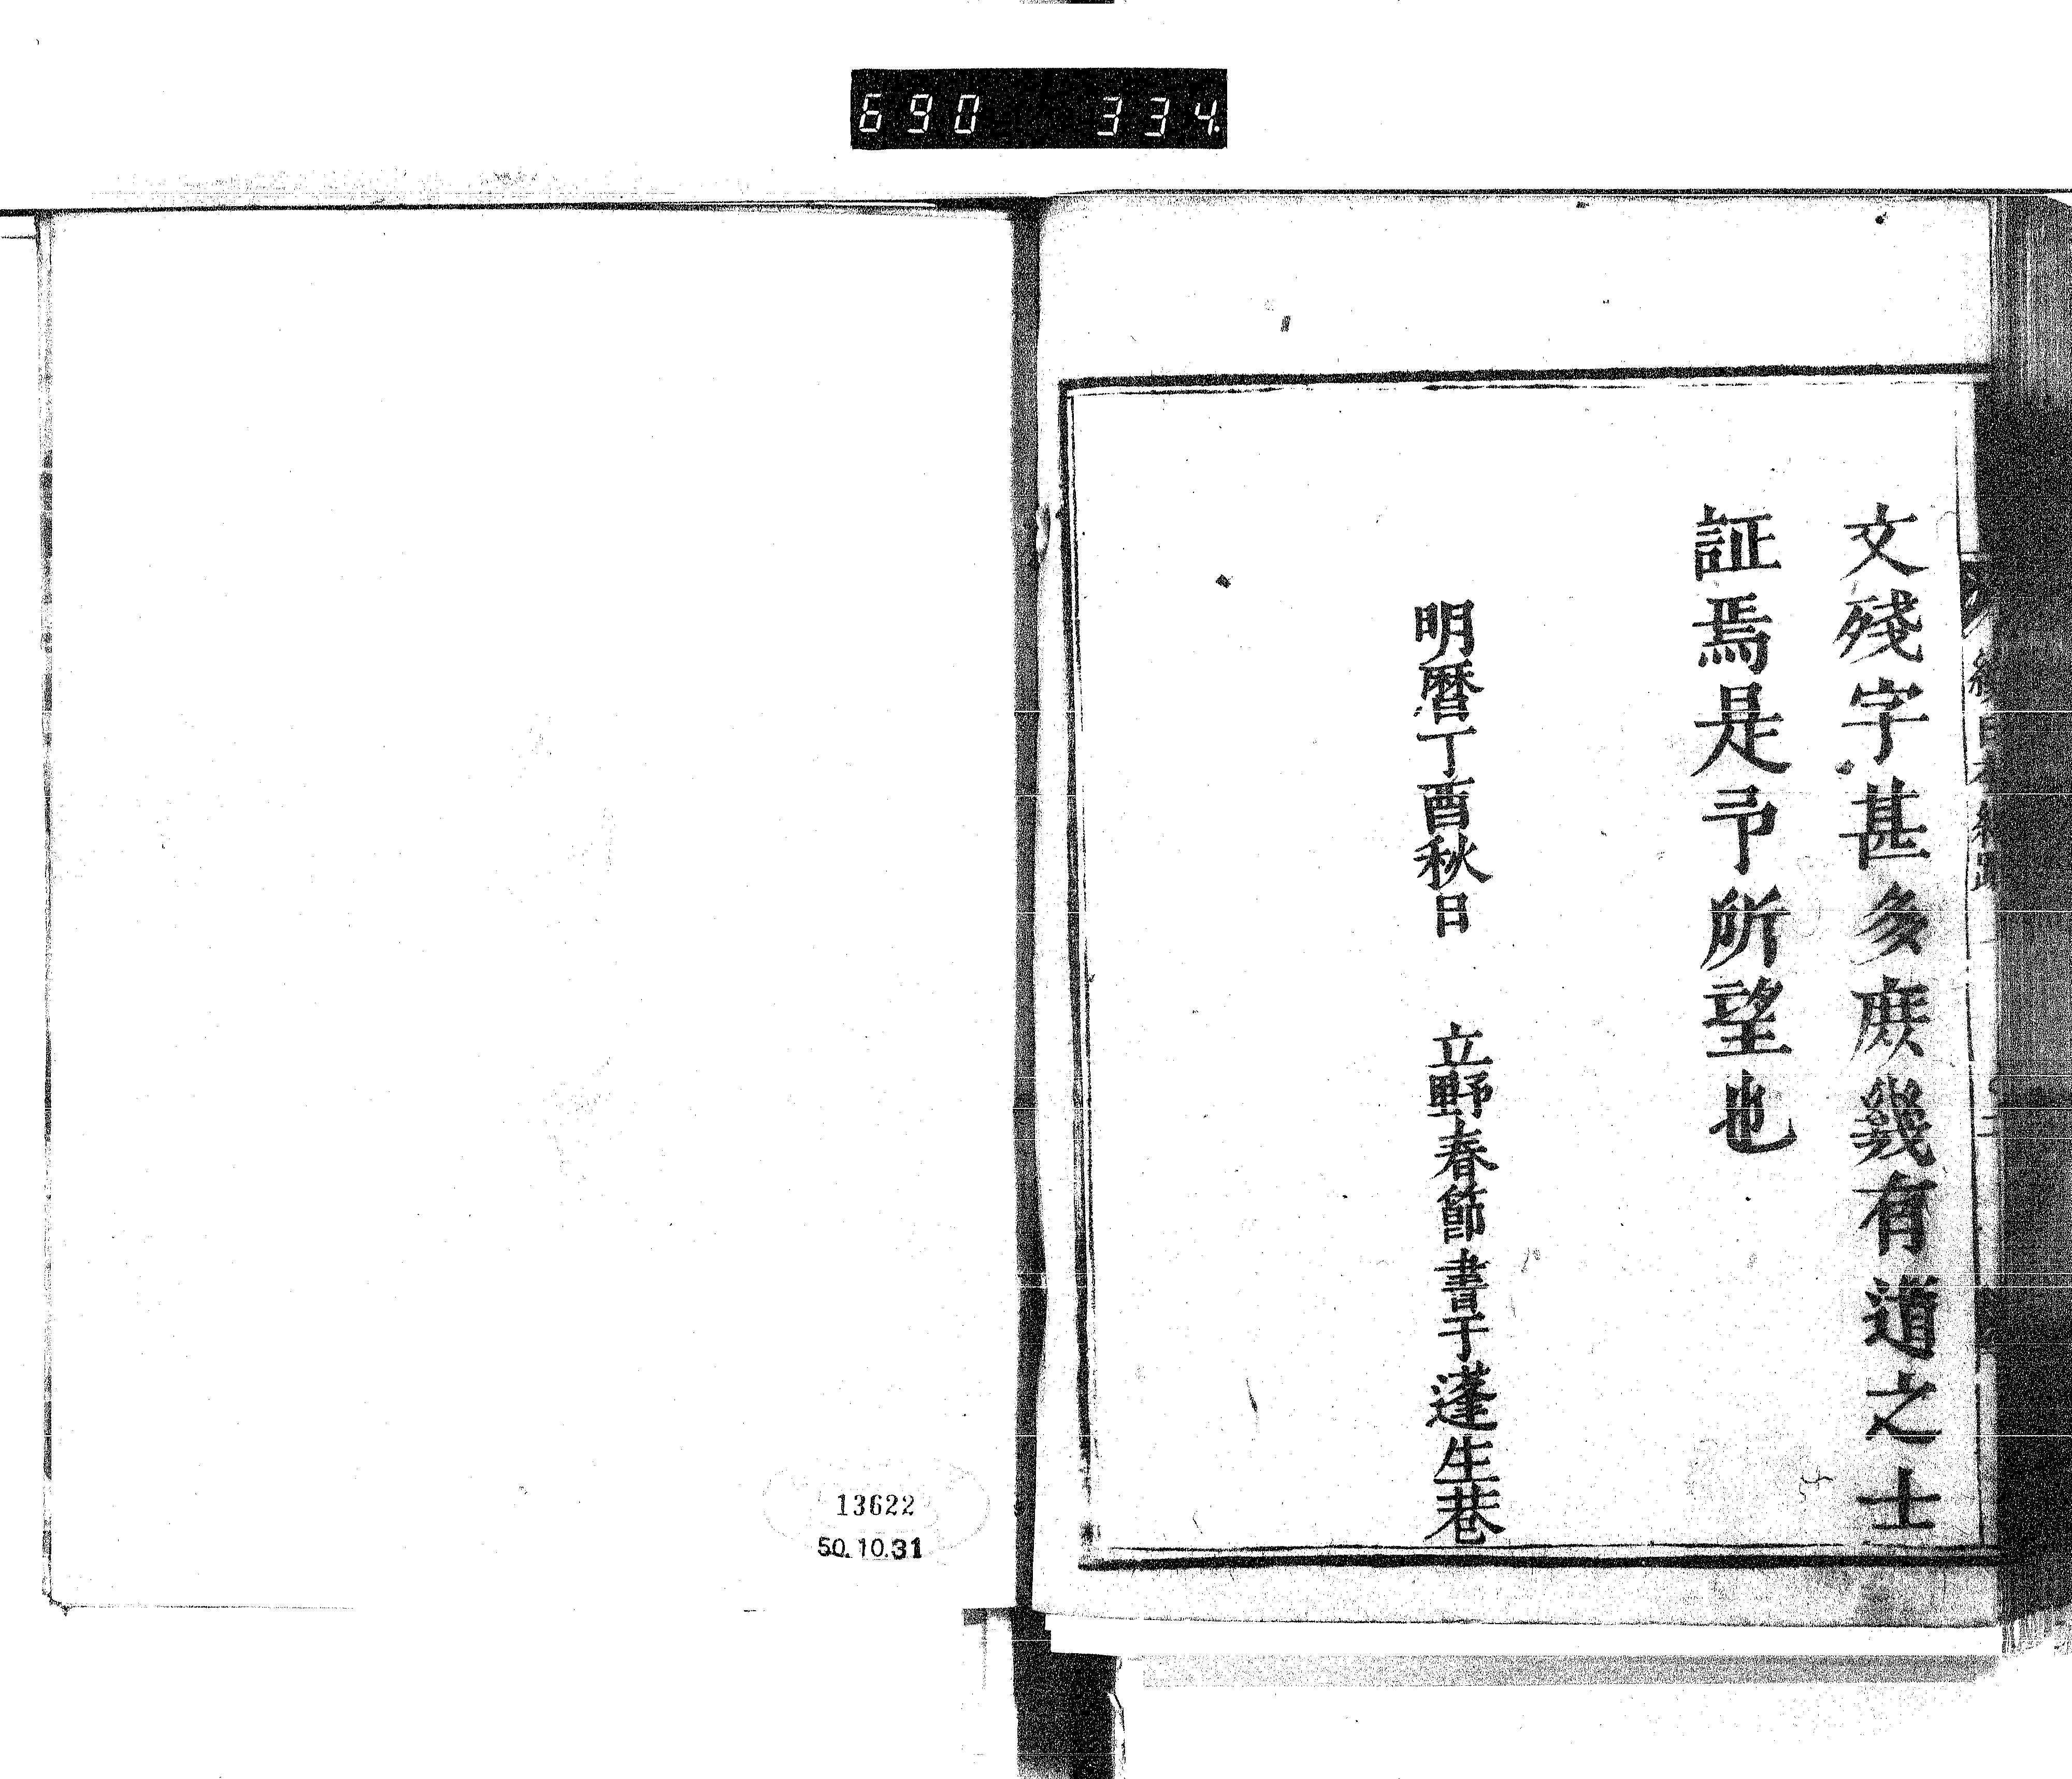 690 334.
文殘字甚多庶幾有道之士
証焉是予所望也
明暦丁酉秋日 立野春節書于蓬生巷
13622
50.10.31